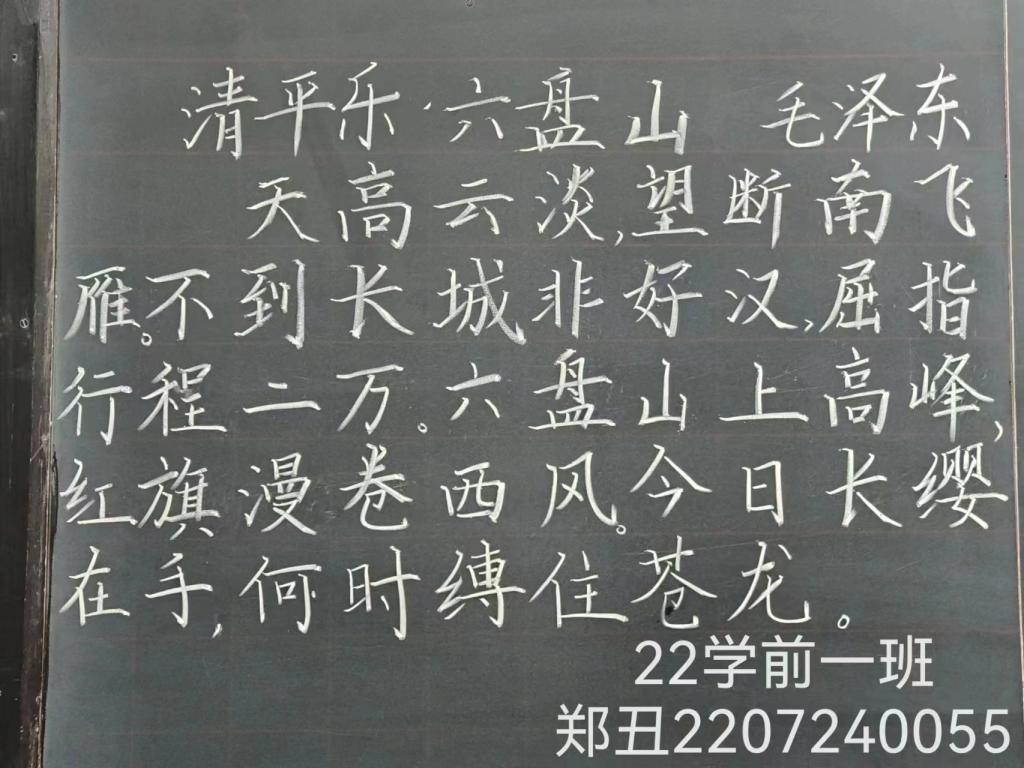 清平乐·六盘山 毛泽东
天高云淡,望断南飞
雁。不到长城非好汉,屈指
行程二万。六盘山上高峰,
红旗漫卷西风。今日长缨
在手,何时缚住苍龙。
22学前一班
郑丑2207240055